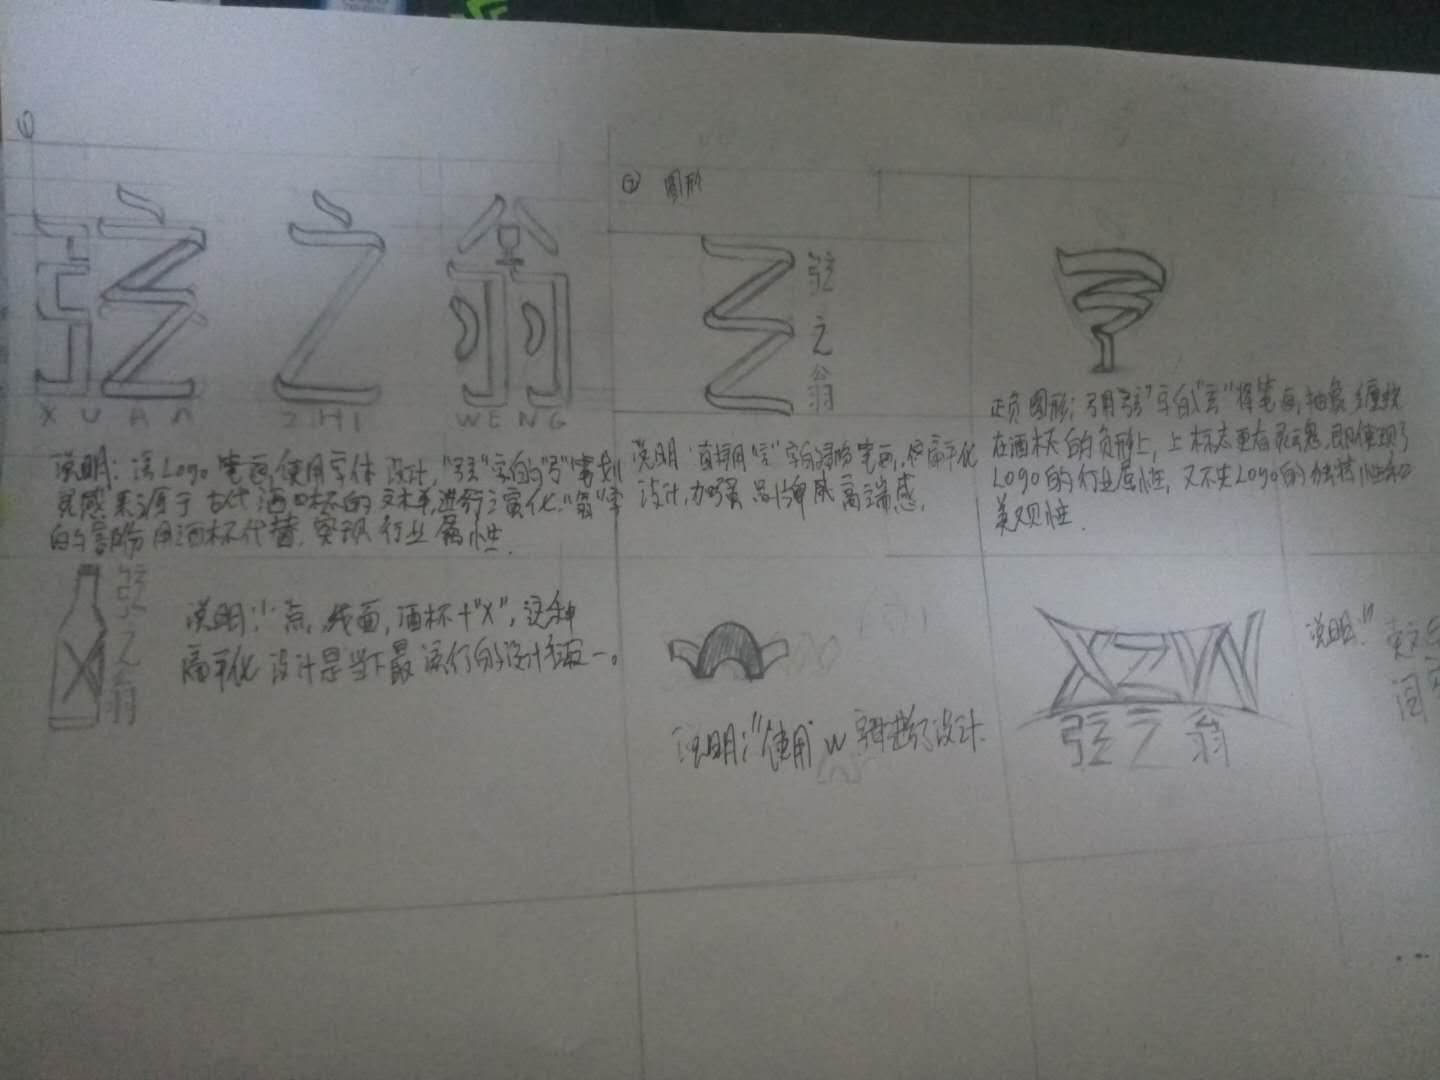 ①
弦之翁
XUAN ZHI WENG
说明：该Logo笔画，使用字体设计，"弦"字的"弓"笔划
灵感来源于古代酒口杯的文本，进行演化."翁"字
的部份用酒杯代替，突现行业属性.
② 图形
弦
之
翁
说明 直接用"玄"字的笔画，扁平化
设计，力 品牌 高端感，
正负图形：引用"弦"字的"玄"将笔画，抽象缠绕
在酒杯的负形上，上标志更有灵魂，即体现了
Logo的行业属性，又不失Logo的独特性和
美观性.
弦
之
翁
说明：点，线面，酒杯+"X"，这种
扁平化设计是当下最流行的设计 一。
说明："使用"W 设计
XZW
弦之翁
说明："